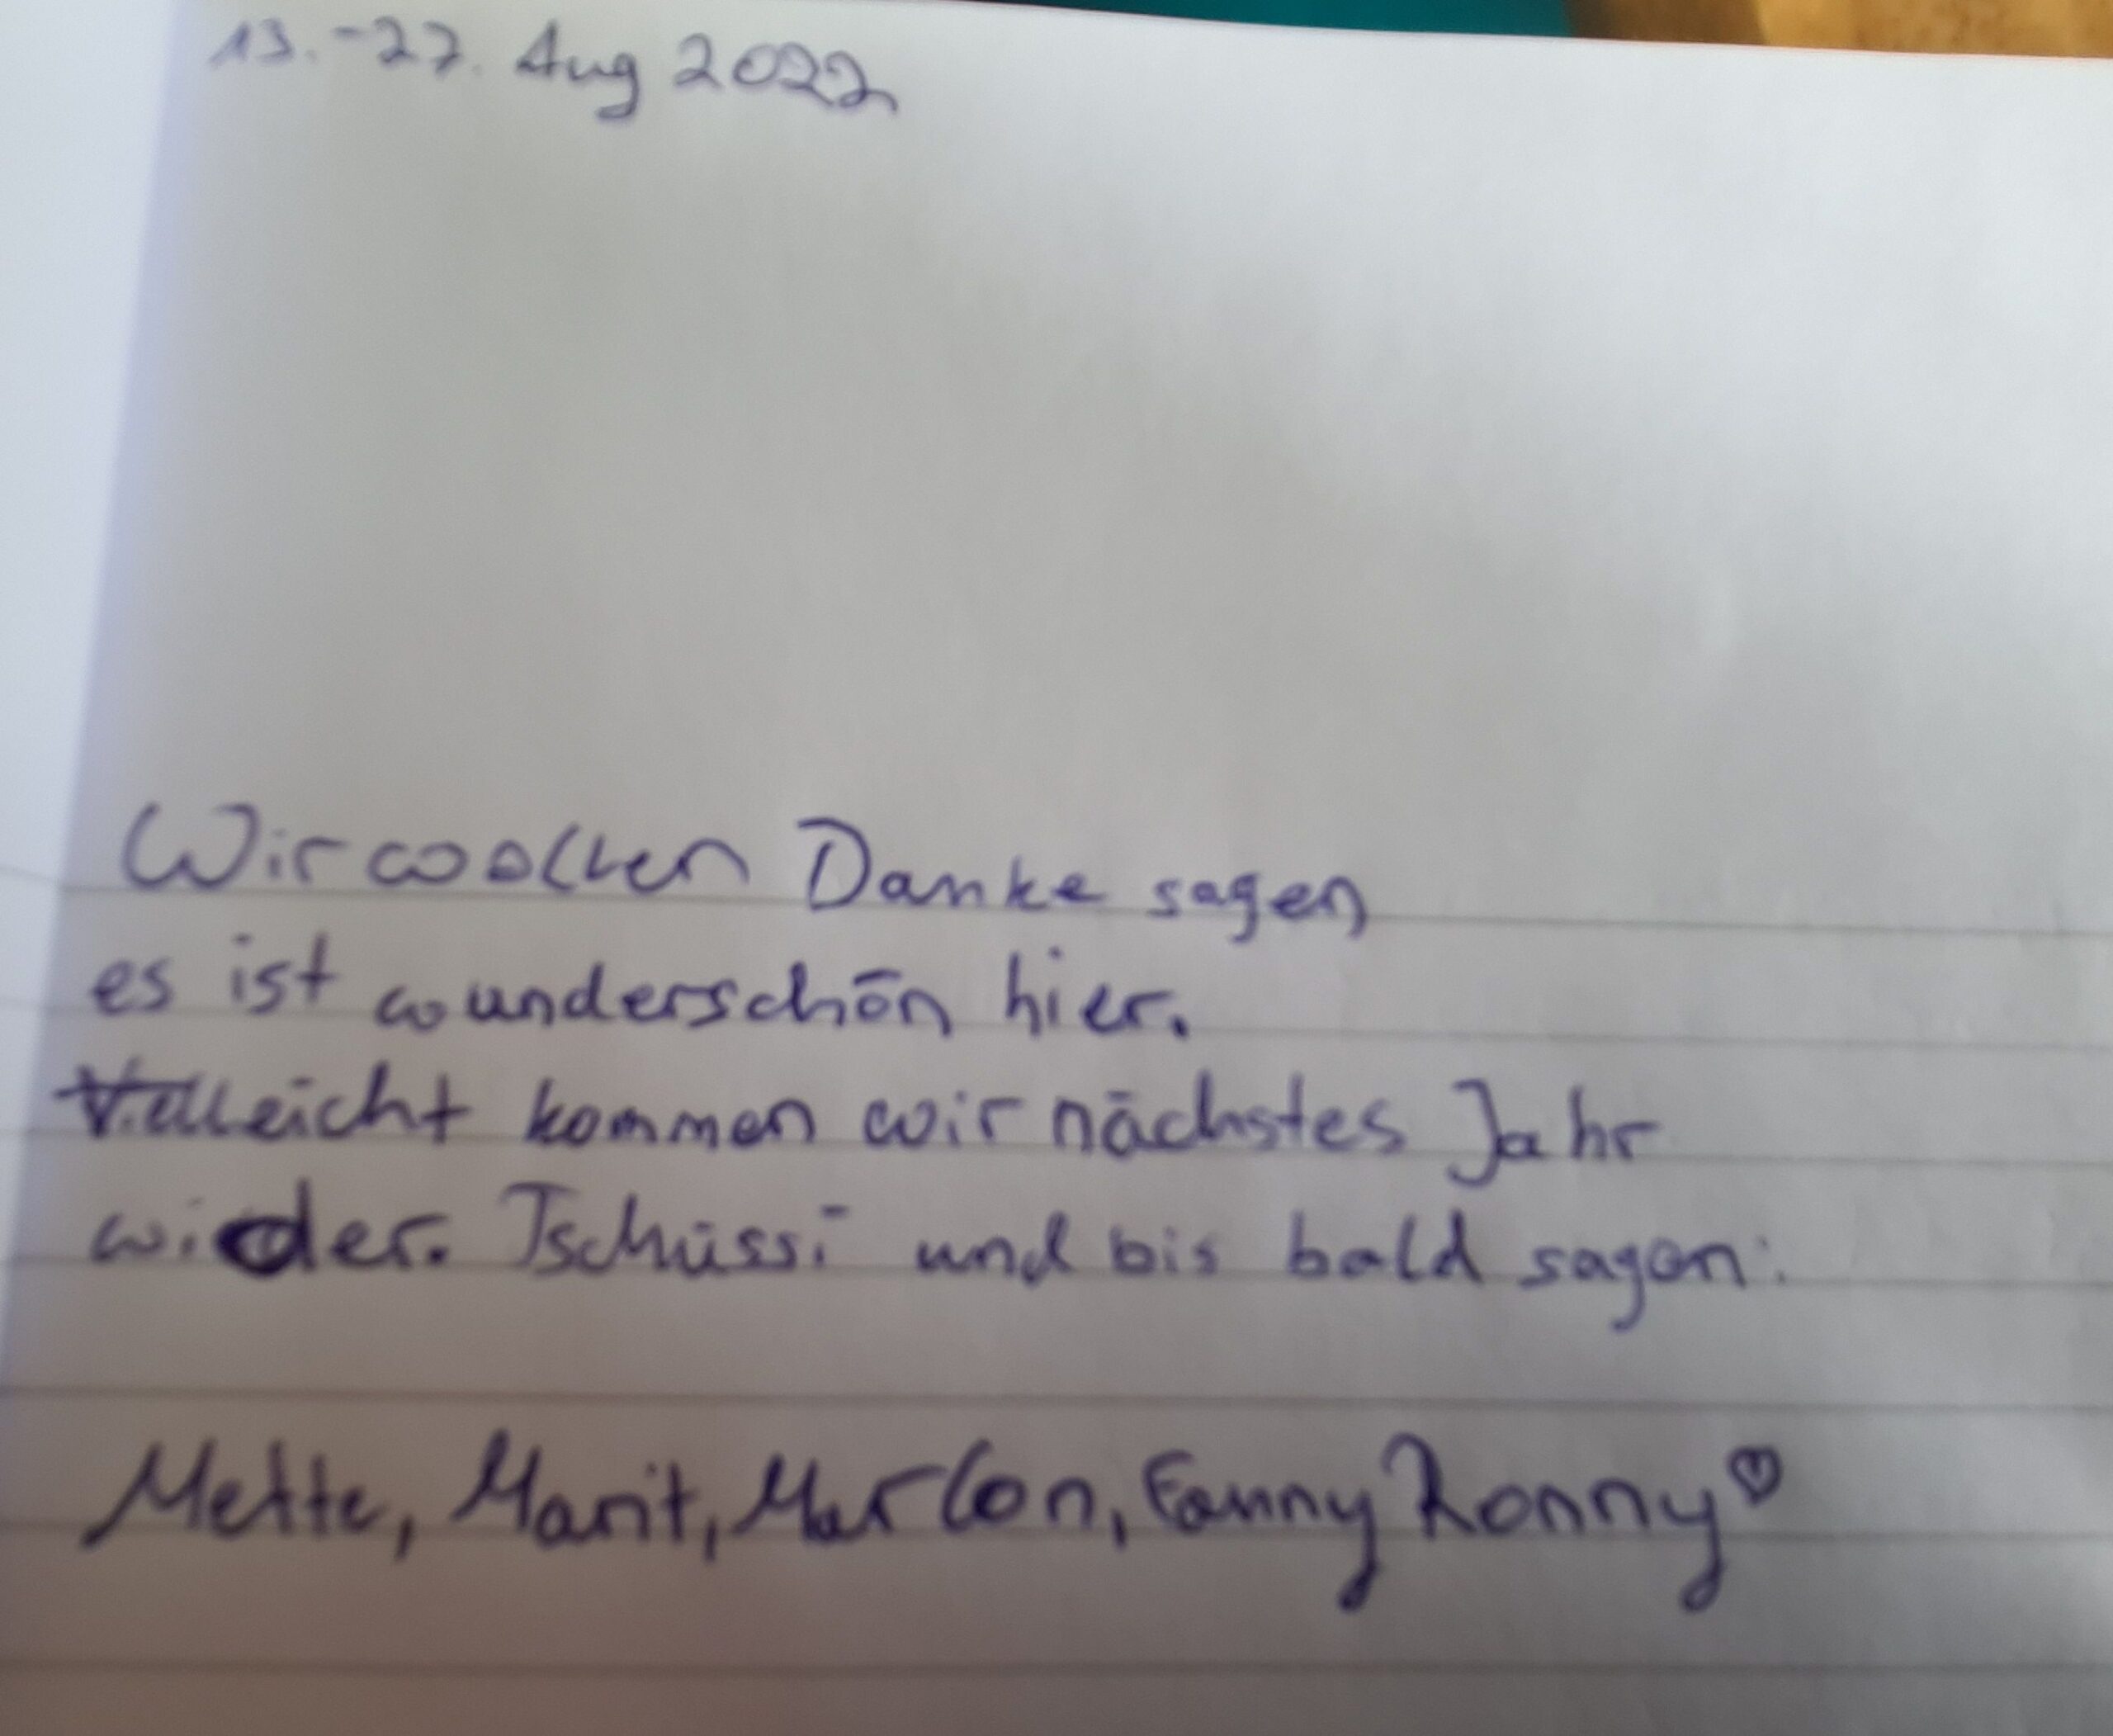 13.-27. Aug 2022
Wir wollen Danke sagen
es ist wunderschön hier.
Vielleicht kommen wir nächstes Jahr
wieder. Tschüssi und bis bald sagen:
Mette, Marit, Marlon, Fanny Ronny ♡